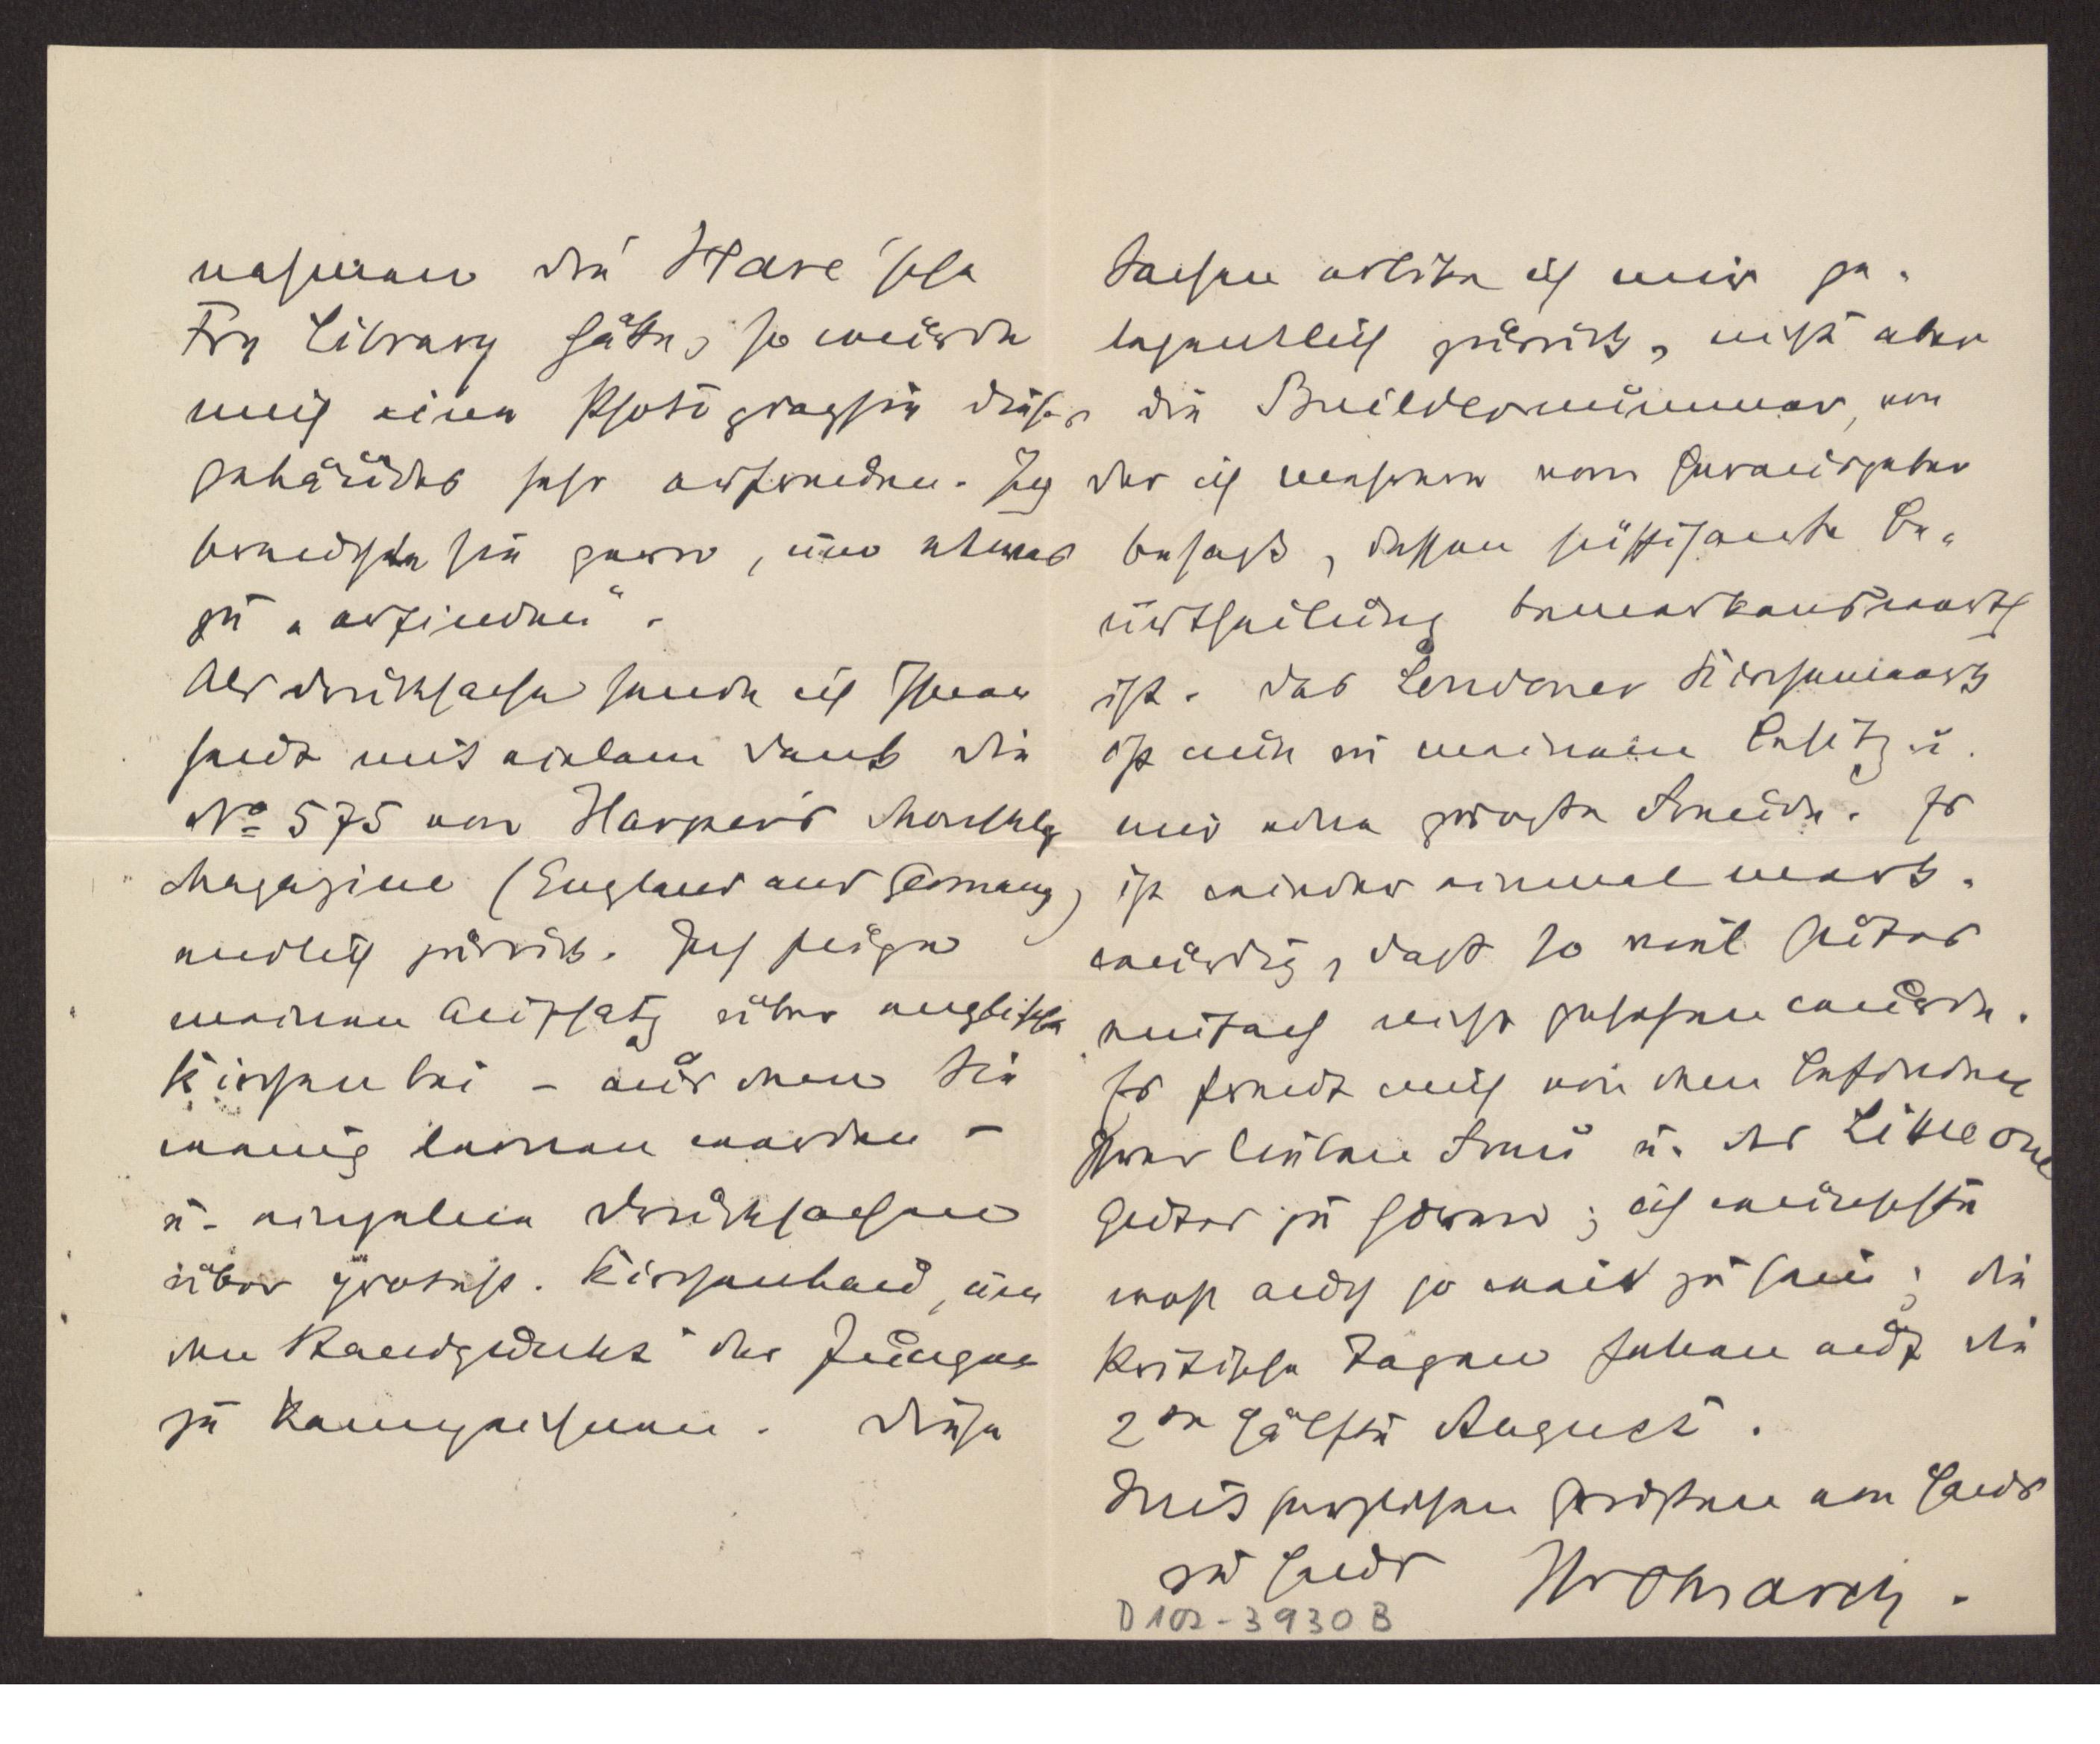 nehmen die Hare'sche
Fry Library hätte, so würde
mich eine Photographie dieses
Gebäudes sehr erfreuen. Ich
brauchte sie gern, um etwas
zu „erfinden".
Als Drucksache sende ich Ihnen
heut mit vielem Dank die
No 575 von Harper's Monthly
Magazine (England and Germany)
endlich zurück. Ich füge
meinen Aufsatz über englische
Kirchen bei – aus dem Sie
wenig lernen werden –
u. einzelne Drucksachen
über protest. Kirchenbau, um
den
zu Diese
Sachen erbitte ich mir ge-
legentlich zurück, nicht aber
die Buildernummer, von
der ich mehrere vom Herausgeber
besaß, dessen süffisante Be-
urtheilung bemerkenswerth
ist. Das Londoner Kirchenwerk
ist nun in meinem Besitz u.
mir eine große Freude. Es
ist wieder einmal merk-
würdig, daß so viel Gutes
einfach nicht gesehen wurde.
Es freut mich von dem Befinden
Ihrer lieben Frau u. des Little One
Gutes zu hören; ich wünschte
erst auch so weit zu sein; die
kritische Tagen haben auf die
2te Hälfte August.
Mit herzlichen Grüßen von Haus
zu Haus Ihr OMarch.
D 102-3930 B